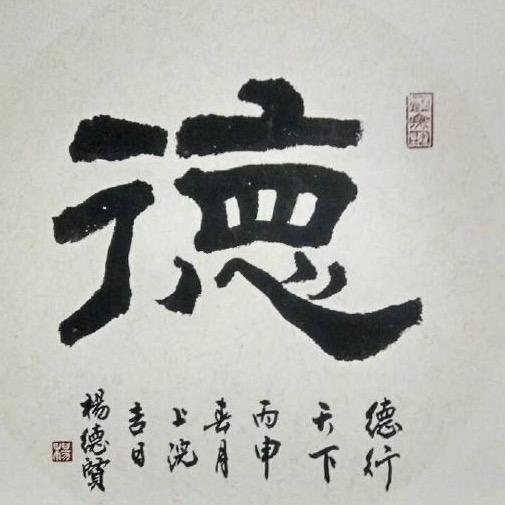 德
德行
天下
丙申
春月
上浣
吉日
楊德賢
楊